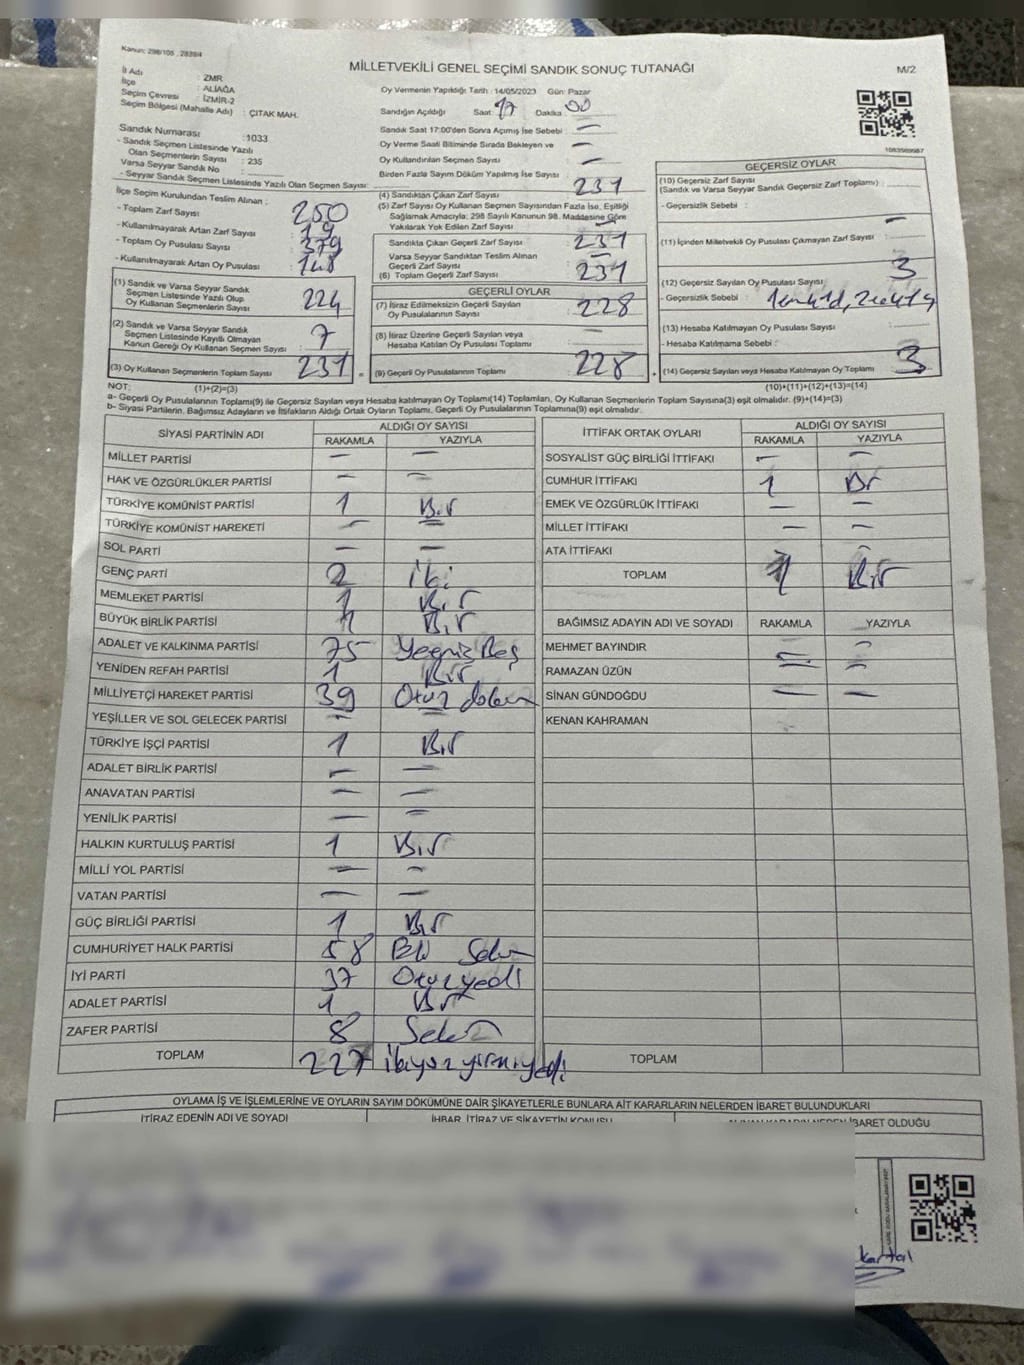 Kanun: 298/105 , 2839/4
MİLLETVEKİLİ GENEL SEÇİMİ SANDIK SONUÇ TUTANAĞI
M/2
İl Adı : ZMR
İlçe : ALİAĞA
Seçim Çevresi : İZMİR-2
Seçim Bölgesi (Mahalle Adı) : ÇITAK MAH.
Sandık Numarası : 1033
- Sandık Seçmen Listesinde Yazılı
Olan Seçmenlerin Sayısı : 235
Varsa Seyyar Sandık No :
- Seyyar Sandık Seçmen Listesinde Yazılı Olan Seçmen Sayısı:
İlçe Seçim Kurulundan Teslim Alınan ;
- Toplam Zarf Sayısı : 250
- Kullanılmayarak Artan Zarf Sayısı : 19
- Toplam Oy Pusulası Sayısı : 379
- Kullanılmayarak Artan Oy Pusulası : 148
(1) Sandık ve Varsa Seyyar Sandık
Seçmen Listesinde Yazılı Olup
Oy Kullanan Seçmenlerin Sayısı : 224
(2) Sandık ve Varsa Seyyar Sandık
Seçmen Listesinde Kayıtlı Olmayan
Kanun Gereği Oy Kullanan Seçmen Sayısı : 7
(3) Oy Kullanan Seçmenlerin Toplam Sayısı : 231
Oy Vermenin Yapıldığı Tarih : 14/05/2023 Gün: Pazar
Sandığın Açıldığı Saat : 17 Dakika : 00
Sandık Saat 17:00'den Sonra Açımış İse Sebebi : —
Oy Verme Saati Bitiminde Sırada Bekleyen ve
Oy Kullandırılan Seçmen Sayısı : —
Birden Fazla Sayım Döküm Yapılmış İse Sayısı :
(4) Sandıktan Çıkan Zarf Sayısı : 231
(5) Zarf Sayısı Oy Kullanan Seçmen Sayısından Fazla İse, Eşitliği
Sağlamak Amacıyla; 298 Sayılı Kanunun 98. Maddesine Göre
Yakılarak Yok Edilen Zarf Sayısı : —
Sandıkla Çıkan Geçerli Zarf Sayısı : 231
Varsa Seyyar Sandıktan Teslim Alınan
Geçerli Zarf Sayısı : —
(6) Toplam Geçerli Zarf Sayısı : 231
GEÇERLİ OYLAR
(7) İtiraz Edilmeksizin Geçerli Sayılan
Oy Pusulalarının Sayısı : 228
(8) İtiraz Üzerine Geçerli Sayılan veya
Hesaba Katılan Oy Pusulası Toplamı : —
(9) Geçerli Oy Pusulalarının Toplamı : 228
1083989987
GEÇERSİZ OYLAR
(10) Geçersiz Zarf Sayısı
(Sandık ve Varsa Seyyar Sandık Geçersiz Zarf Toplamı) :
- Geçersizlik Sebebi :
(11) İçinden Milletvekili Oy Pusulası Çıkmayan Zarf Sayısı : —
(12) Geçersiz Sayılan Oy Pusulası Sayısı : 3
- Geçersizlik Sebebi :
(13) Hesaba Katılmayan Oy Pusulası Sayısı :
- Hesaba Katılmama Sebebi :
(14) Geçersiz Sayılan veya Hesaba Katılmayan Oy Toplamı : 3
NOT: (1)+(2)=(3) (10)+(11)+(12)+(13)=(14)
a- Geçerli Oy Pusulalarının Toplamı(9) ile Geçersiz Sayılan veya Hesaba katılmayan Oy Toplamı(14) Toplamları, Oy Kullanan Seçmenlerin Toplam Sayısına(3) eşit olmalıdır. (9)+(14)=(3)
b- Siyasi Partilerin, Bağımsız Adayların ve İttifakların Aldığı Ortak Oyların Toplamı, Geçerli Oy Pusulalarının Toplamına(9) eşit olmalıdır.
SİYASİ PARTİNİN ADI ALDIĞI OY SAYISI
RAKAMLA YAZIYLA
MİLLET PARTİSİ — —
HAK VE ÖZGÜRLÜKLER PARTİSİ — —
TÜRKİYE KOMÜNİST PARTİSİ 1 Bir
TÜRKİYE KOMÜNİST HAREKETİ — —
SOL PARTİ — —
GENÇ PARTİ 2 İki
MEMLEKET PARTİSİ 1 Bir
BÜYÜK BİRLİK PARTİSİ 1 Bir
ADALET VE KALKINMA PARTİSİ 75 Yetmiş Beş
YENİDEN REFAH PARTİSİ 1 Bir
MİLLİYETÇİ HAREKET PARTİSİ 39 Otuz dokuz
YEŞİLLER VE SOL GELECEK PARTİSİ — —
TÜRKİYE İŞÇİ PARTİSİ 1 Bir
ADALET BİRLİK PARTİSİ — —
ANAVATAN PARTİSİ — —
YENİLİK PARTİSİ — —
HALKIN KURTULUŞ PARTİSİ 1 Bir
MİLLİ YOL PARTİSİ — —
VATAN PARTİSİ — —
GÜÇ BİRLİĞİ PARTİSİ 1 Bir
CUMHURİYET HALK PARTİSİ 58 Elli Sekiz
İYİ PARTİ 37 Otuz yedi
ADALET PARTİSİ 1 Bir
ZAFER PARTİSİ 8 Sekiz
TOPLAM 227 ikiyüz yirmiyedi
İTTİFAK ORTAK OYLARI ALDIĞI OY SAYISI
RAKAMLA YAZIYLA
SOSYALİST GÜÇ BİRLİĞİ İTTİFAKI — —
CUMHUR İTTİFAKI 1 Bir
EMEK VE ÖZGÜRLÜK İTTİFAKI — —
MİLLET İTTİFAKI — —
ATA İTTİFAKI — —
TOPLAM 1 Bir
BAĞIMSIZ ADAYIN ADI VE SOYADI RAKAMLA YAZIYLA
MEHMET BAYINDIR — —
RAMAZAN ÜZÜN — —
SİNAN GÜNDOĞDU — —
KENAN KAHRAMAN
TOPLAM
OYLAMA İŞ VE İŞLEMLERİNE VE OYLARIN SAYIM DÖKÜMÜNE DAİR ŞİKAYETLERLE BUNLARA AİT KARARLARIN NELERDEN İBARET BULUNDUKLARI
İTİRAZ EDENİN ADI VE SOYADI İHBAR, İTİRAZ VE ŞİKAYETİN KONUSU ALINAN KARARIN NEDEN İBARET OLDUĞU